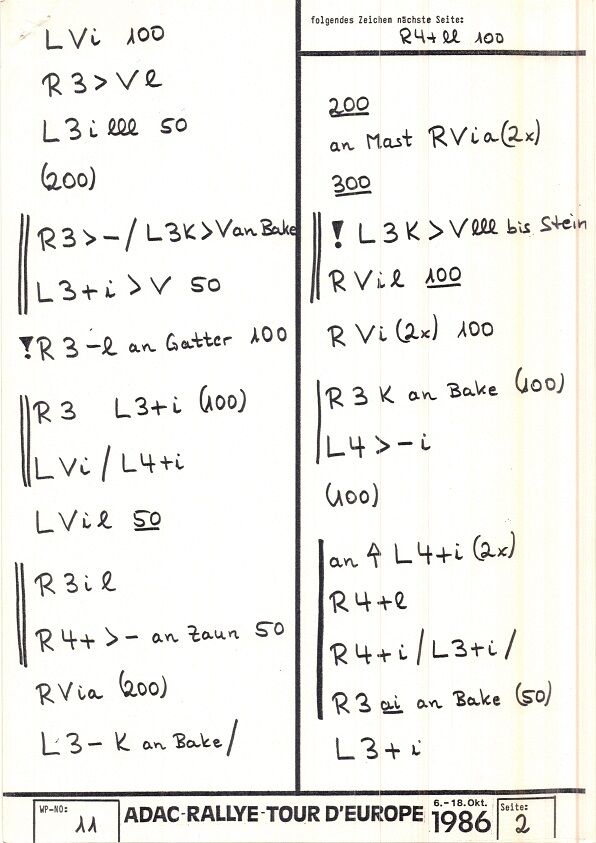 L Vi 100
R 3 > V l
L 3 i lll 50
(200)
R 3 > - / L 3 K > V an Bake
L 3 + i > V 50
! R 3 - l an Gatter 100
R 3 L 3 + i (100)
L Vi / L 4 + i
L V i l 50
R 3 i l
R 4 + > - an Zaun 50
R V i a (200)
L 3 - K an Bake /
folgendes Zeichen nächste Seite:
R4+ ll 100
200
an Mast R V i a (2x)
300
! L 3 K > V lll bis Stein
R V i l 100
R V i (2x) 100
R 3 K an Bake (100)
L 4 > - i
(100)
an ↑ L 4 + i (2x)
R 4 + l
R 4 + i / L 3 + i /
R 3 ai an Bake (50)
L 3 + i
WP-NO: 11
ADAC-RALLYE-TOUR D'EUROPE
6.-18.Okt.
1986
Seite: 2